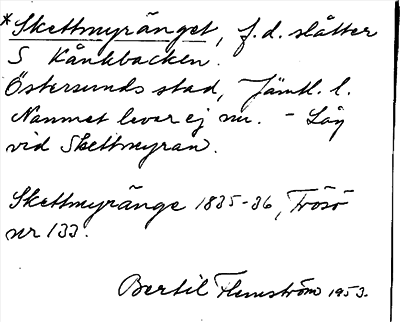 *Skettmyränget, f.d. slåtter
S Kånkbacken.
Östersunds stad, Jämtl. l.
Namnet lever ej nu. - Låg
vid Skettmyran.
Skettmyränge 1835-36, Frösö
nr 133.
Bertil Flemström 1953.